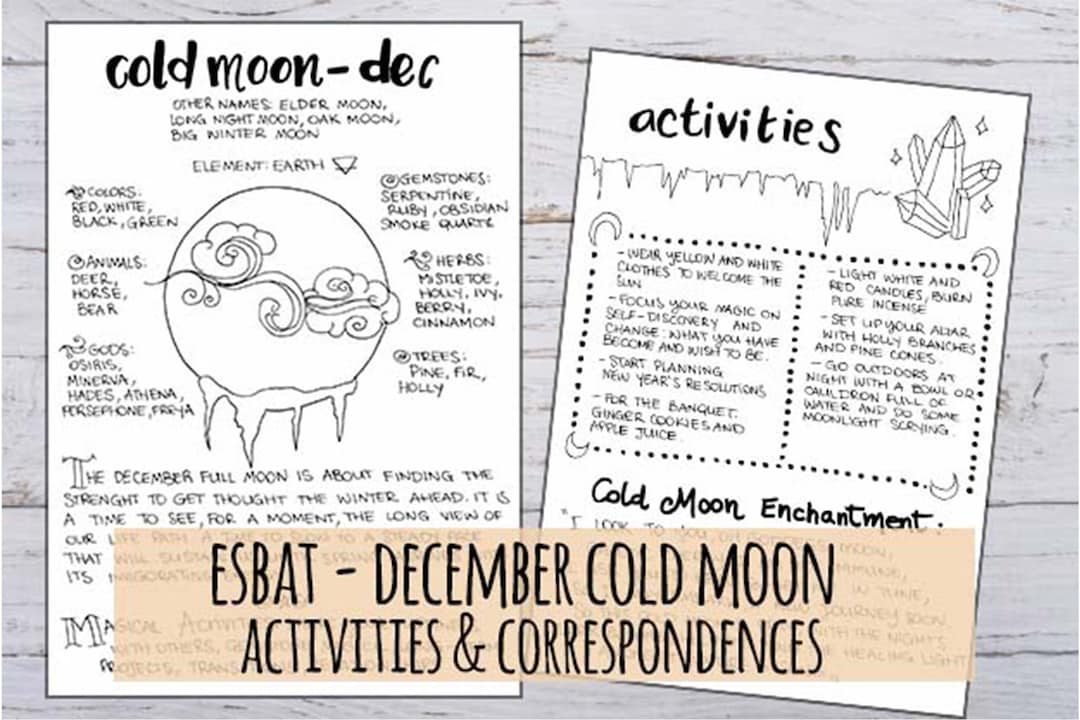 cold moon - dec
OTHER NAMES: ELDER MOON,
LONG NIGHT MOON, OAK MOON,
BIG WINTER MOON
ELEMENT: EARTH
COLORS:
RED, WHITE,
BLACK, GREEN
ANIMALS:
DEER,
HORSE,
BEAR
GODS:
OSIRIS,
MINERVA,
HADES, ATHENA,
PERSEPHONE, FREYA
GEMSTONES:
SERPENTINE,
RUBY, OBSIDIAN
SMOKE QUARTZ
HERBS:
MISTLETOE,
HOLLY, IVY,
BERRY,
CINNAMON
TREES:
PINE, FIR,
HOLLY
THE DECEMBER FULL MOON IS ABOUT FINDING THE
STRENGHT TO GET THOUGHT THE WINTER AHEAD. IT IS
A TIME TO SEE, FOR A MOMENT, THE LONG VIEW OF
OUR LIFE PATH. A TIME TO SLOW TO A STEADY PACE
THAT WILL SUSTAIN
ITS INVIGORATING
MAGICAL
WITH OTHERS,
PROJECTS,
activities
- WEAR YELLOW AND WHITE
CLOTHES TO WELCOME THE
SUN
- FOCUS YOUR MAGIC ON
SELF-DISCOVERY AND
CHANGE: WHAT YOU HAVE
BECOME AND WISH TO BE.
- START PLANNING
NEW YEAR'S RESOLUTIONS
- FOR THE BANQUET:
GINGER COOKIES AND
APPLE JUICE.
- LIGHT WHITE AND
RED CANDLES, BURN
PURE INCENSE
- SET UP YOUR ALTAR
WITH HOLLY BRANCHES
AND PINE CONES.
- GO OUTDOORS AT
NIGHT WITH A BOWL OR
CAULDRON FULL OF
WATER AND DO SOME
MOONLIGHT SCRYING.
Cold Moon Enchantment:
"I LOOK TO YOU, OH GODDESS MOON,
IN TUNE,
NEW JOURNEY SOON
WITH THE NIGHT'S
THE HEALING LIGHT
ESBAT - DECEMBER COLD MOON
ACTIVITIES & CORRESPONDENCES